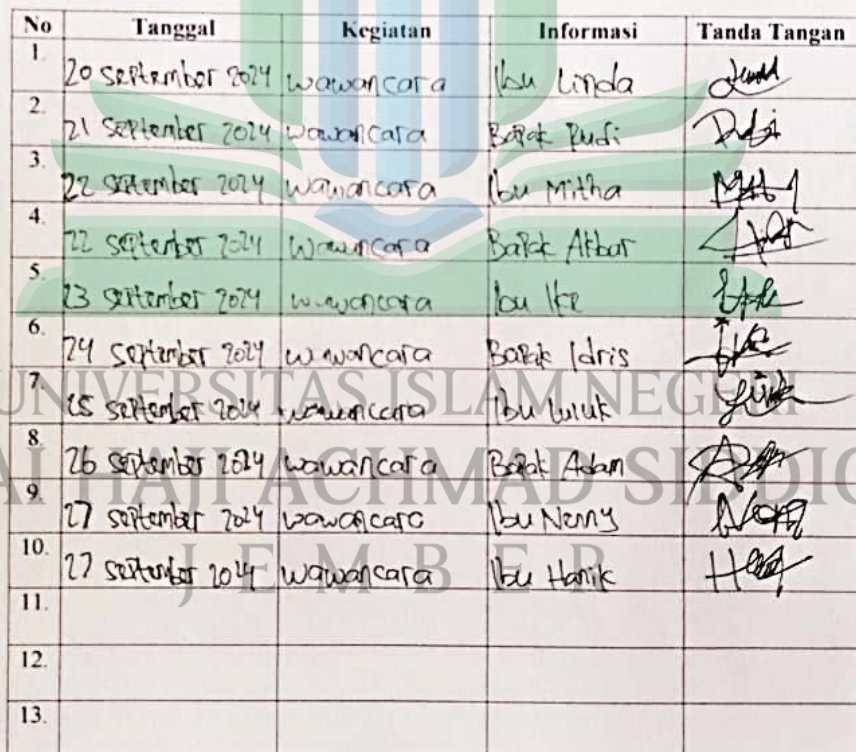 No Tanggal Kegiatan Informasi Tanda Tangan
1. 20 September 2024 wawancara Ibu Linda
2. 21 September 2024 wawancara Bapak Rudi
3. 22 September 2024 wawancara Ibu Mitha
4. 22 September 2024 wawancara Bapak Akbar
5. 23 September 2024 wawancara Ibu Ike
6. 24 September 2024 wawancara Bapak Idris
7. 25 September 2024 wawancara Ibu Luluk
8. 26 September 2024 wawancara Bapak Adam
9. 27 September 2024 wawancara Ibu Nenny
10. 27 September 2024 wawancara Ibu Hanik
11.
12.
13.
UNIVERSITAS ISLAM NEGERI
HAJI ACHMAD
JEMBER